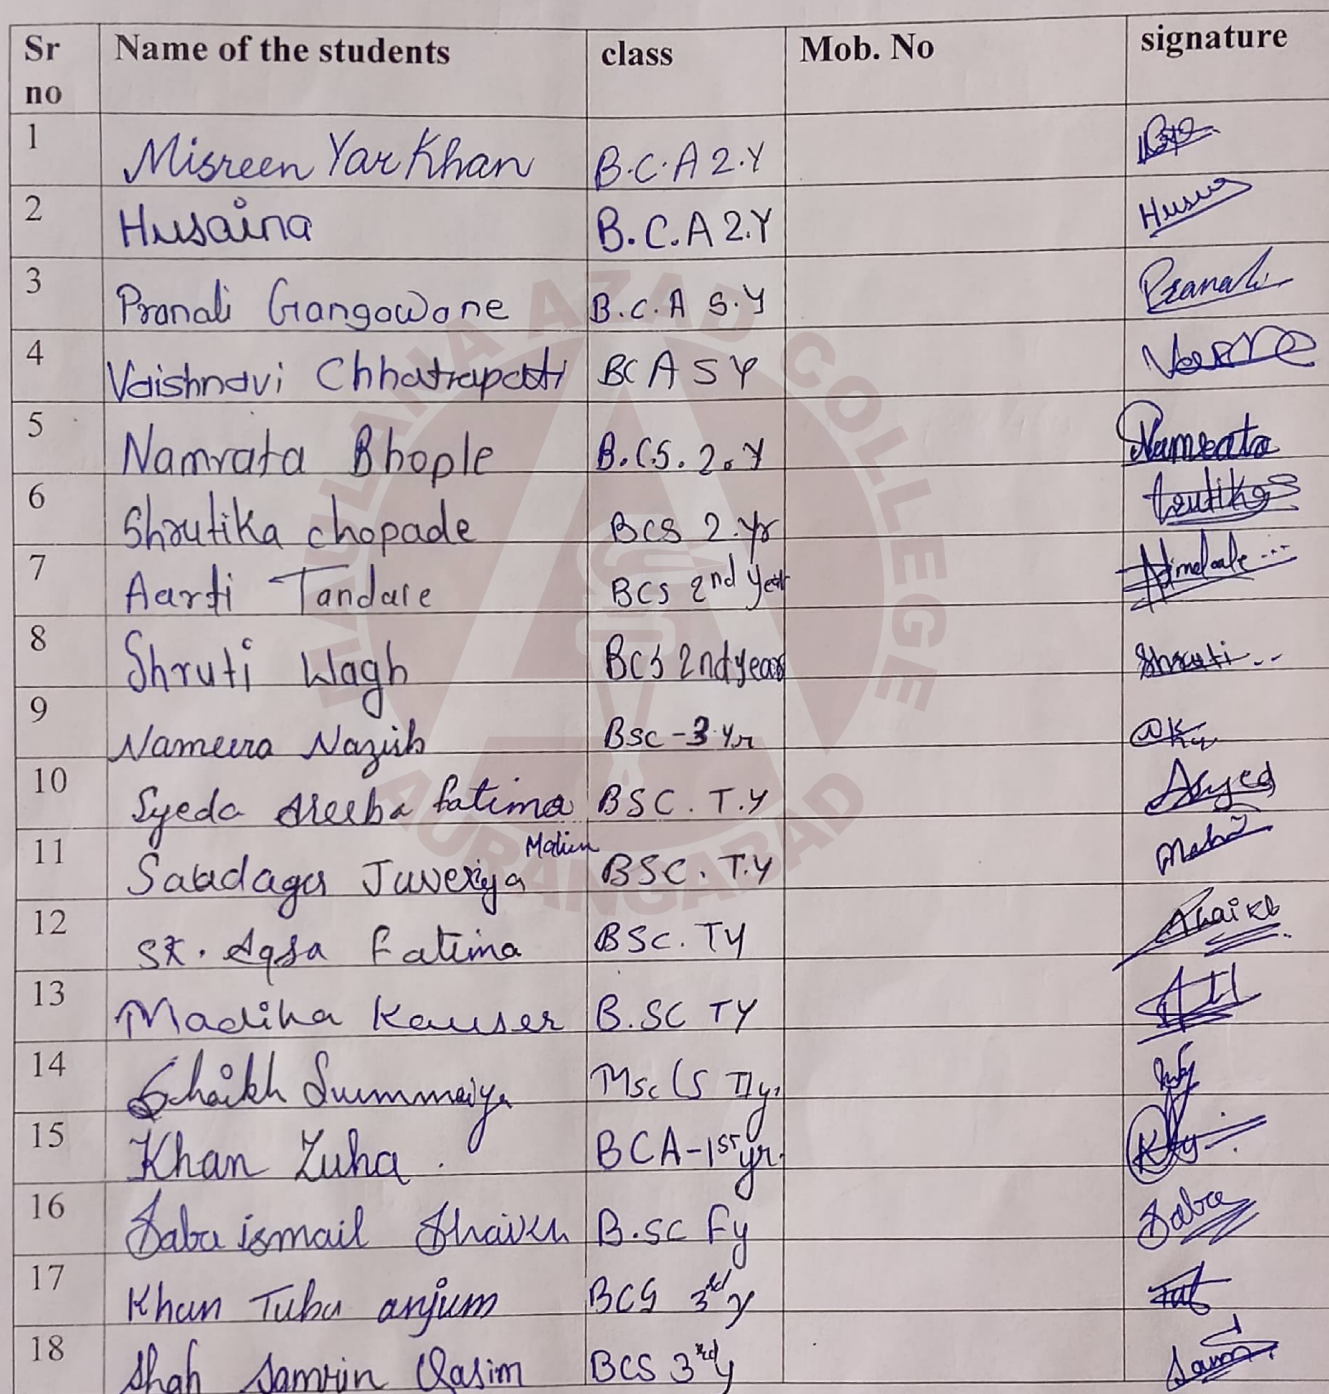 Sr no Name of the students class Mob. No signature
1 Misreen Yar Khan B.C.A 2.Y
2 Husaina B.C.A 2.Y Husna
3 Pranali Gangawane B.C.A S.Y Pranali
4 Vaishnavi Chhatrapati BCA SY
5 Namrata Bhople B.CS. 2.Y Namrata
6 Shrutika chopade BCS 2.yr
7 Aarti Tandale BCS 2nd year
8 Shruti Wagh BCS 2nd year Shruti
9 Nameera Nazish BSC-3 Yr
10 Syeda Areeba fatima BSC. T.Y ASyed
11 Juveriya BSC. T.Y
12 SK. Aqsa Fatima BSC. TY Shaikh
13 Madiha Kauser B.SC TY
14 Shaikh Summaiya Msc CS II yr
15 Khan Zuha. BCA-1ST yr.
16 Saba ismail Shaikh B.sc Fy Saba
17 Khan Tuba anjum BCS 3rd y
18 Shah Samrin Qasim BCS 3rd y
MAULANA AZAD COLLEGE
AURANGABAD